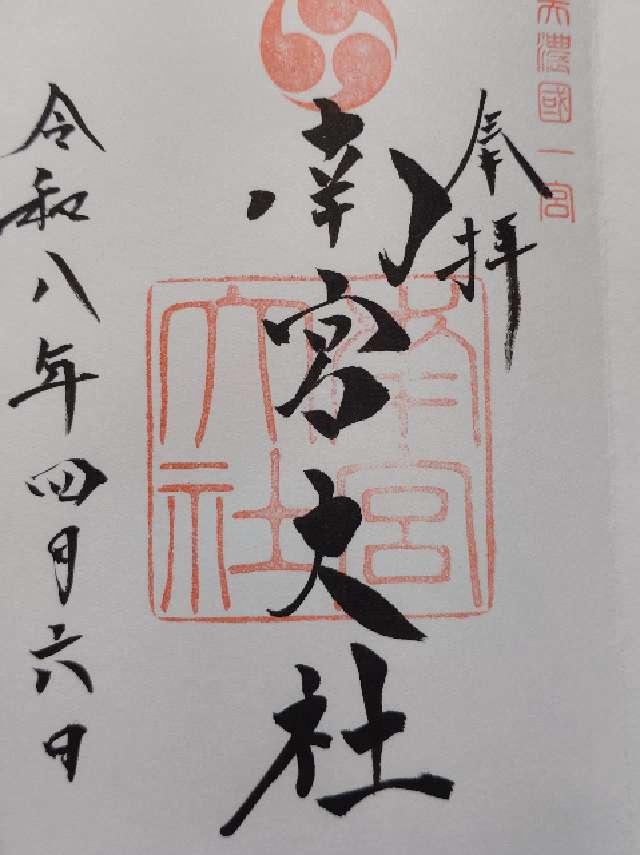 美濃國一宮
奉拝
南宮大社
南宮大社
令和八年四月六日